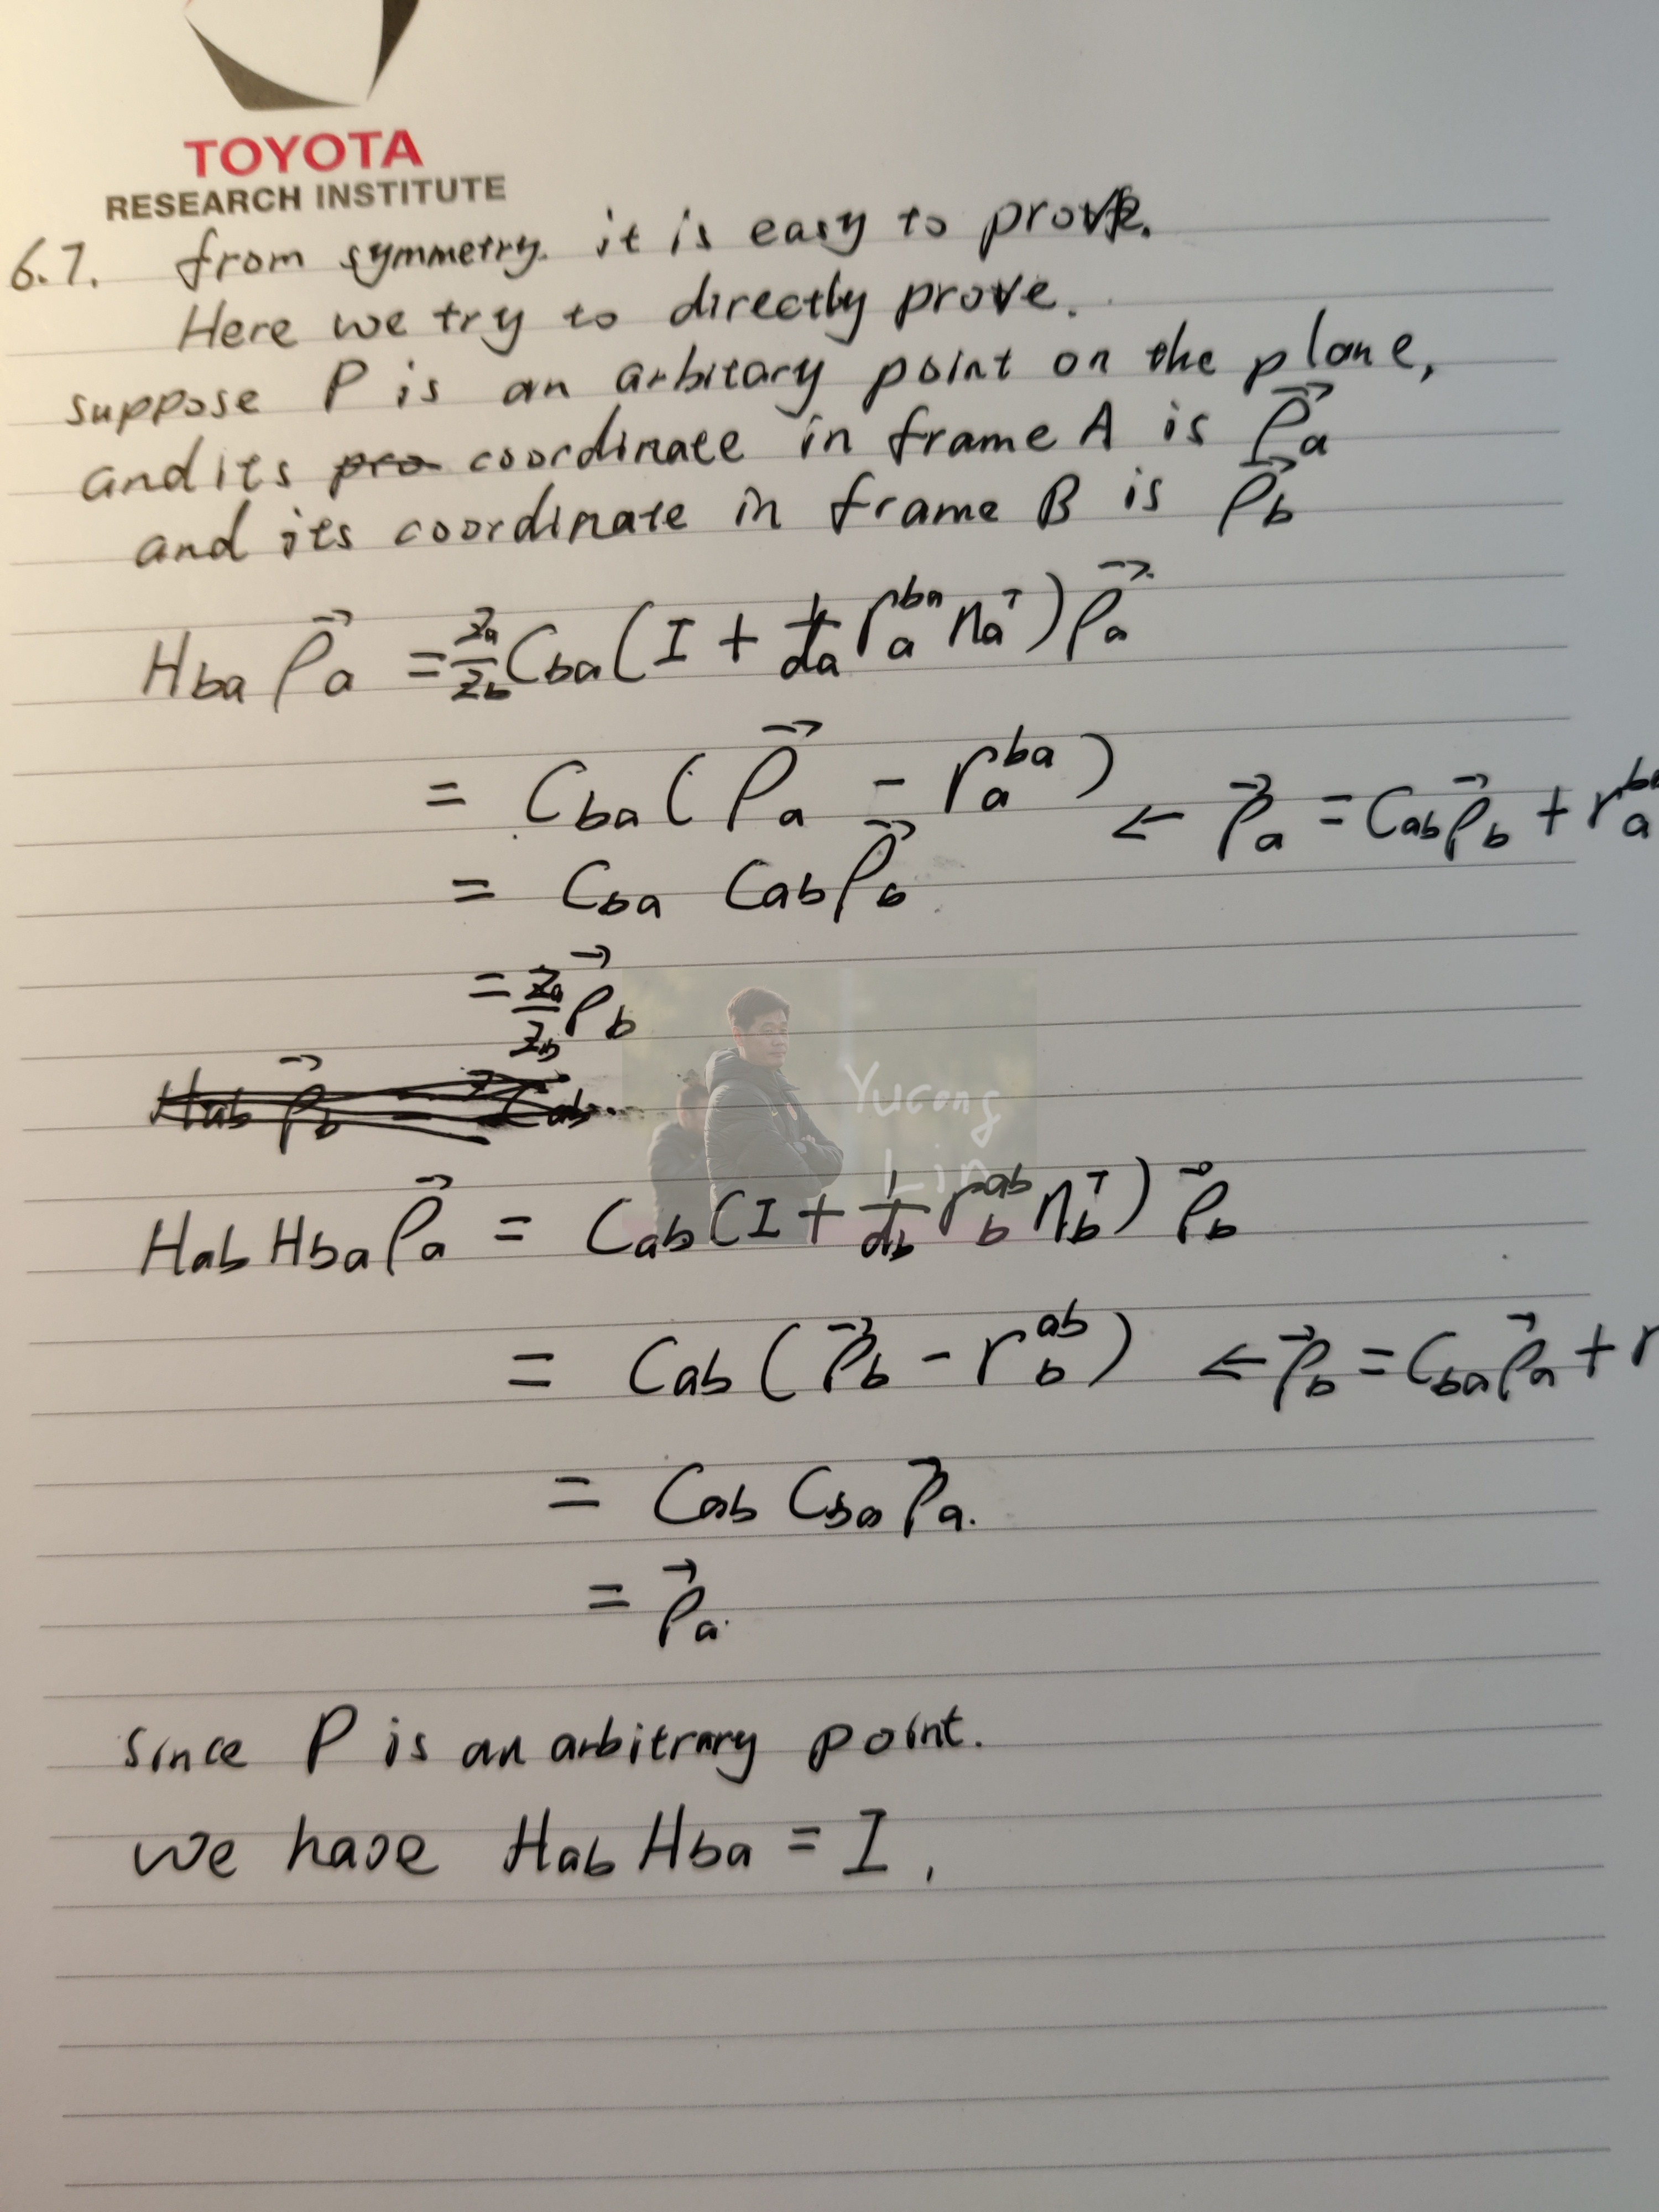 TOYOTA
RESEARCH INSTITUTE
6.7. from symmetry. it is easy to prove.
Here we try to directly prove.
suppose P is an arbitary point on the plane,
and its coordinate in frame A is ρ⃗a
and its coordinate in frame B is ρ⃗b
Hba ρ⃗a = za/zb Cba (I + 1/da ra^ba na^T) ρ⃗a
= Cba (ρ⃗a - ra^ba) ← ρ⃗a = Cab ρ⃗b + ra^ba
= Cba Cab ρ⃗b
= za/zb ρ⃗b
Hab ρ⃗b = Cab
Yucong
Lin
Hab Hba ρ⃗a = Cab (I + 1/db rb^ab nb^T) ρ⃗b
= Cab (ρ⃗b - rb^ab) ← ρ⃗b = Cba ρ⃗a + r
= Cab Cba ρ⃗a.
= ρ⃗a.
since P is an arbitrary point.
we have Hab Hba = I,